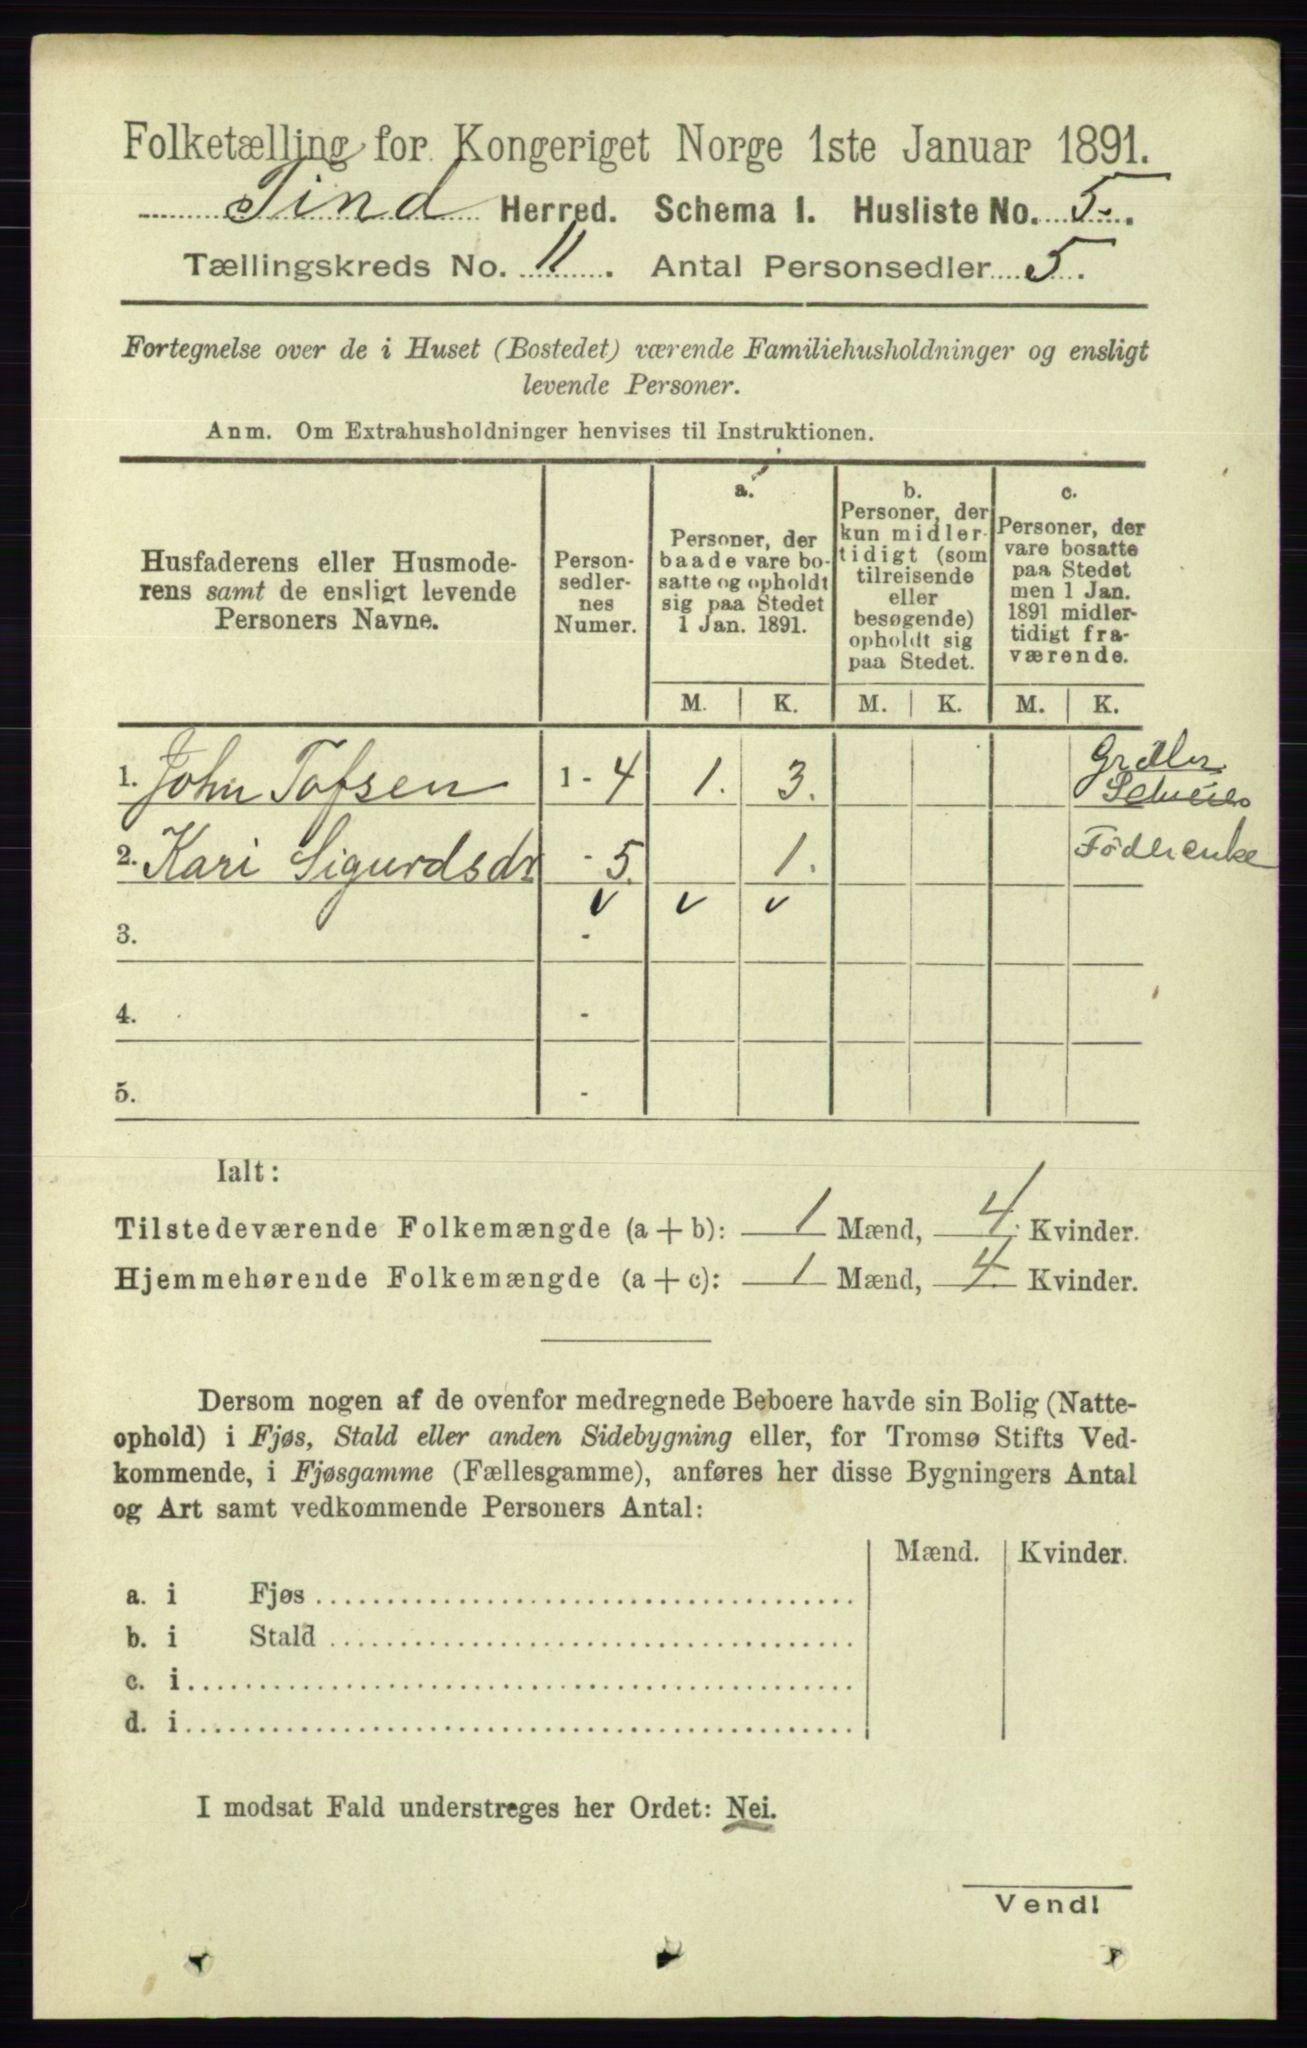 Folketælling for Kongeriget Norge 1ste Januar 1891.
Tind Herred. Schema I. Husliste No. 5.
Tællingskreds No. 11. Antal Personsedler 5.
Fortegnelse over de i Huset (Bostedet) værende Familiehusholdninger og ensligt
levende Personer.
Anm. Om Extrahusholdninger henvises til Instruktionen.
Husfaderens eller Husmode-
rens samt de ensligt levende
Personers Navne.
Person-
sedler-
nes
Numer.
a.
Personer, der
baade vare bo-
satte og opholdt
sig paa Stedet
1 Jan. 1891.
b.
Personer, der
kun midler-
tidigt (som
tilreisende
eller
besøgende)
opholdt sig
paa Stedet.
c.
Personer, der
vare bosatte
paa Stedet
men 1 Jan.
1891 midler-
tidigt fra-
værende.
M. K. M. K. M. K.
1. John Tofsen 1 - 4 1. 3.
2. Kari Sigurdsdr - 5. 1. Föderenke
3. -
4. -
5. -
Ialt:
Tilstedeværende Folkemængde (a + b): 1 Mænd, 4 Kvinder.
Hjemmehørende Folkemængde (a + c): 1 Mænd, 4 Kvinder.
Dersom nogen af de ovenfor medregnede Beboere havde sin Bolig (Natte-
ophold) i Fjøs, Stald eller anden Sidebygning eller, for Tromsø Stifts Ved-
kommende, i Fjøsgamme (Fællesgamme), anføres her disse Bygningers Antal
og Art samt vedkommende Personers Antal:
Mænd. Kvinder.
a. i Fjøs
b. i Stald
c. i
d. i
I modsat Fald understreges her Ordet: Nei.
Vend!